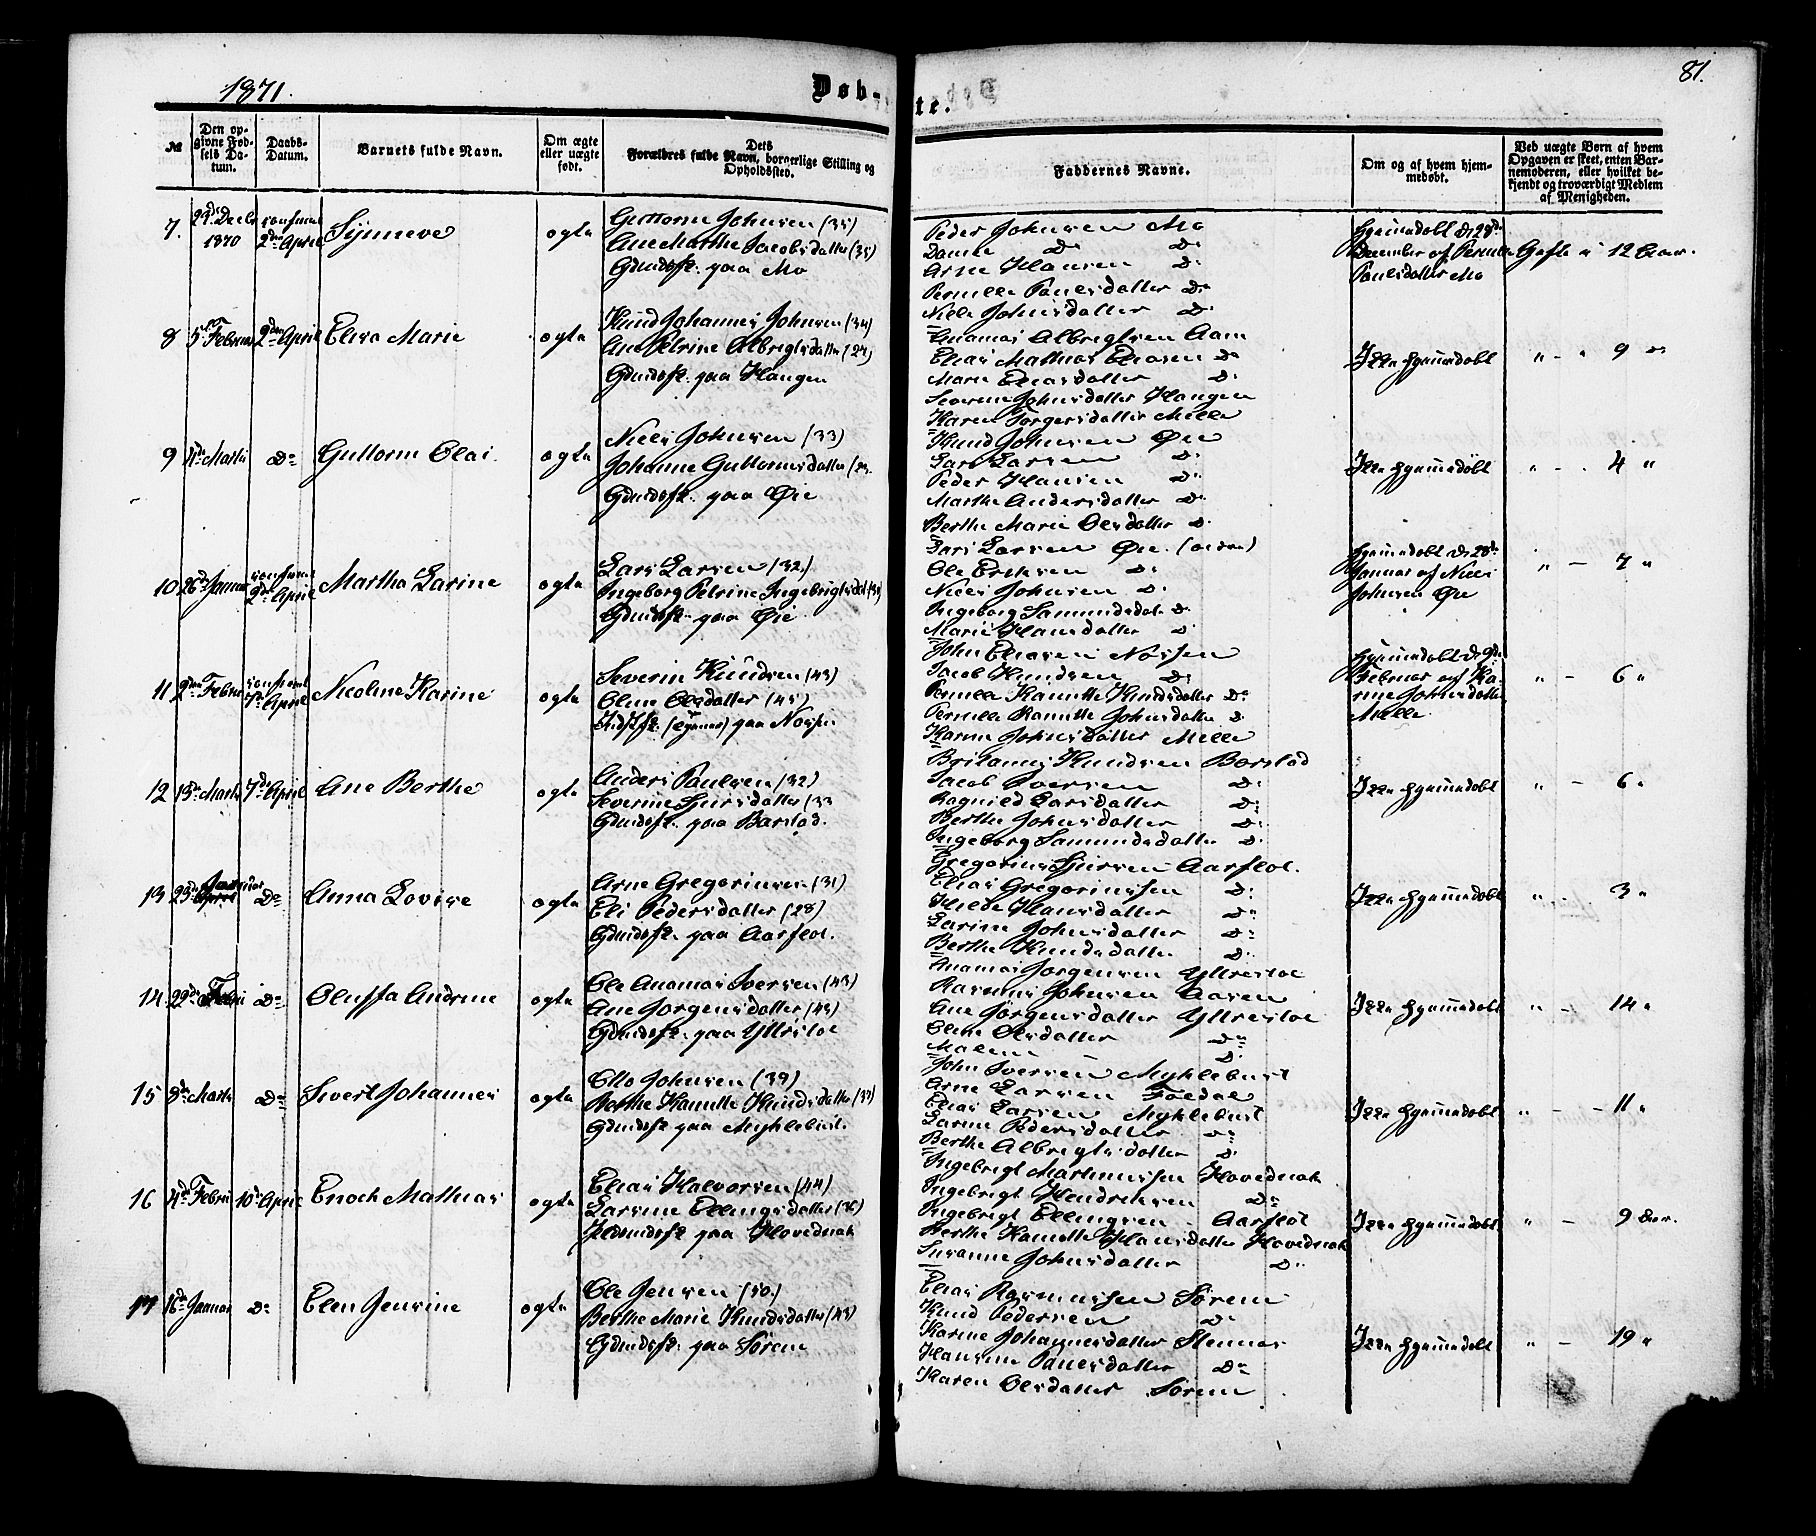 1871.
Døb-
te.
81.
№
Den op-
givne Fød-
sels Da-
tum.
Daabs-
Datum.
Barnets fulde Navn.
Om ægte
eller uægte
født.
Dets
Forældres fulde Navn, borgerlige Stilling og
Opholdssted.
Faddernes Navne.
Om og af hvem hjem-
medøbt.
Ved uægte Børn af hvem
Opgaven er skeet, enten Bar-
nemoderen, eller hvilket be-
kjendt og troværdigt Medlem
af Menigheden.
7.
1870
2den April
Synneve
ægte
Guttorm Johnsen (35)
Ane Marthe Jacobsdatter (35)
Gdmdsfk. paa Mo
Peder Johnsen Mo
Arne Hansen Do
Pernille Paulsdatter Do
Niels Johnsdatter Do
Hjemmedøbt
December af Pernille
Paulsdatter Mo
12
8
5te Februar
2den April
Elisa Marie
ægte
Knud Johannes Johnsen (34)
Ane Petrine Albregtsdatter (29)
Gdmdsfk. paa Haugen
Ananias Albregtsen Aam
Elias Mathias Eliasen Do
Marie Eliasdatter Do
Severine Johnsdatter Haugen
Karen Torgersdatter Melle
Ikke hjemmedøbt
9
9
4de Marts
Do
Guttorm Olai
ægte
Niels Johnsen (33)
Johanne Guttormsdatter
Gdmdsfk. paa Øie
Knud Johnsen Øie
Lars Larsen Do
Peder Hansen Do
Marthe Andersdatter Do
Berthe Marie Olsdatter Do
Ikke hjemmedøbt
4
10
26de Januar
2den April
Martha Larine
ægte
Lars Larsen (32)
Ingeborg Petrine Ingebrigtsdat
Gdmdsfk. paa Øie
Lars Larsen Øie
Ole Eriksen Do
Niels Johnsen Do
Ingeborg Samundsdatter Do
Marie Hansdatter Do
Hjemmedøbt
Januar af Niels
Johnsen Øie
7
11
2den Febru
April
Nicoline Karine
ægte
Severin Knudsen (43)
Oline Olsdatter (45)
paa Novsen
John Eliasen Novsen
Jacob Knudsen Do
Pernille Kanutte Knudsdatter Do
Pernille Kanutte Johnsdatter Do
Karen Johnsdatter Melle
Hjemmedøbt
Februar af Ka-
rine Johnsdatter
Melle.
6
12
13de Marts
7de April
Ane Berthe
ægte
Anders Paulsen (32)
Severine Sjursdatter (33
Gdmdsfk. paa Barstad.
Britanus Knudsen Barstad
Jacob Iversen Do
Ragnild Larsdatter Do
Berthe Johnsdatter Do
Ingeborg Samundsdatter Do
Ikke hjemmedøbt
6
13
23de Januar
Do
Anna Lovise
ægte
Arne Gregoriussen (31)
Eli Pedersdatter (28)
Gdmdsfk. paa Aarflot.
Gregorius Sjursen Aarflot.
Elias Gregoriussen Do
Hilde Hansdatter Do
Larine Johnsdatter Do
Berthe Knudsdatter Do
Ikke hjemmedøbt
3
14
Do
Oluffa Andrine
ægte
Ole Ananias Iversen (43)
Ane Jørgensdatter (43)
Gdmdsfk. paa Yttrestøl
Ananias Jørgensen Yttrestøl
Rasmus Johnsen Aasen
Ane Jørgensdatter Yttrestøl
Oline Olsdatter Do
Malene Do
Ikke hjemmedøbt
14
15
Marts
Do
Sivert Johannes
ægte
Otto Johnsen (39)
Berthe Kanutte Knudsdatter
Gdmdsfk. paa Myklebust.
John Iversen Myklebust
Arne Larsen
Elias Larsen Myklebust
Larine Pedersdatter Do
Berthe Albregtsdatter Do
Ikke hjemmedøbt
11
16
4de Febru
10de April
Enoch Mathias
ægte
Elias Halvorsen (44)
Larsine Ellingsdatter (36)
paa Hovednak
Ingebrigt Martinussen Hovednak
Ingebrigt Hendriksen Do
Ingebrigt Ellingsen Aarflot
Berthe Kanutte Hansdatter Hovednak
Susanne Johnsdatter Do
Ikke hjemmedøbt
9
17
16de Januar
Do
Elen Jensine
ægte
Ole Jensen (50)
Berthe Marie Knudsdatter (43)
Gdmdsfk. paa Sørem
Elias Rasmussen Sørem
Knud Pedersen Do
Karine Johannesdatter Stennes
Hansine Paulsdatter Do
Karen Olsdatter Sørem
Ikke hjemmedøbt
19